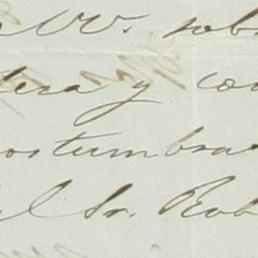 VV. sob
tera y co
ostumbra
l Sr. Rob